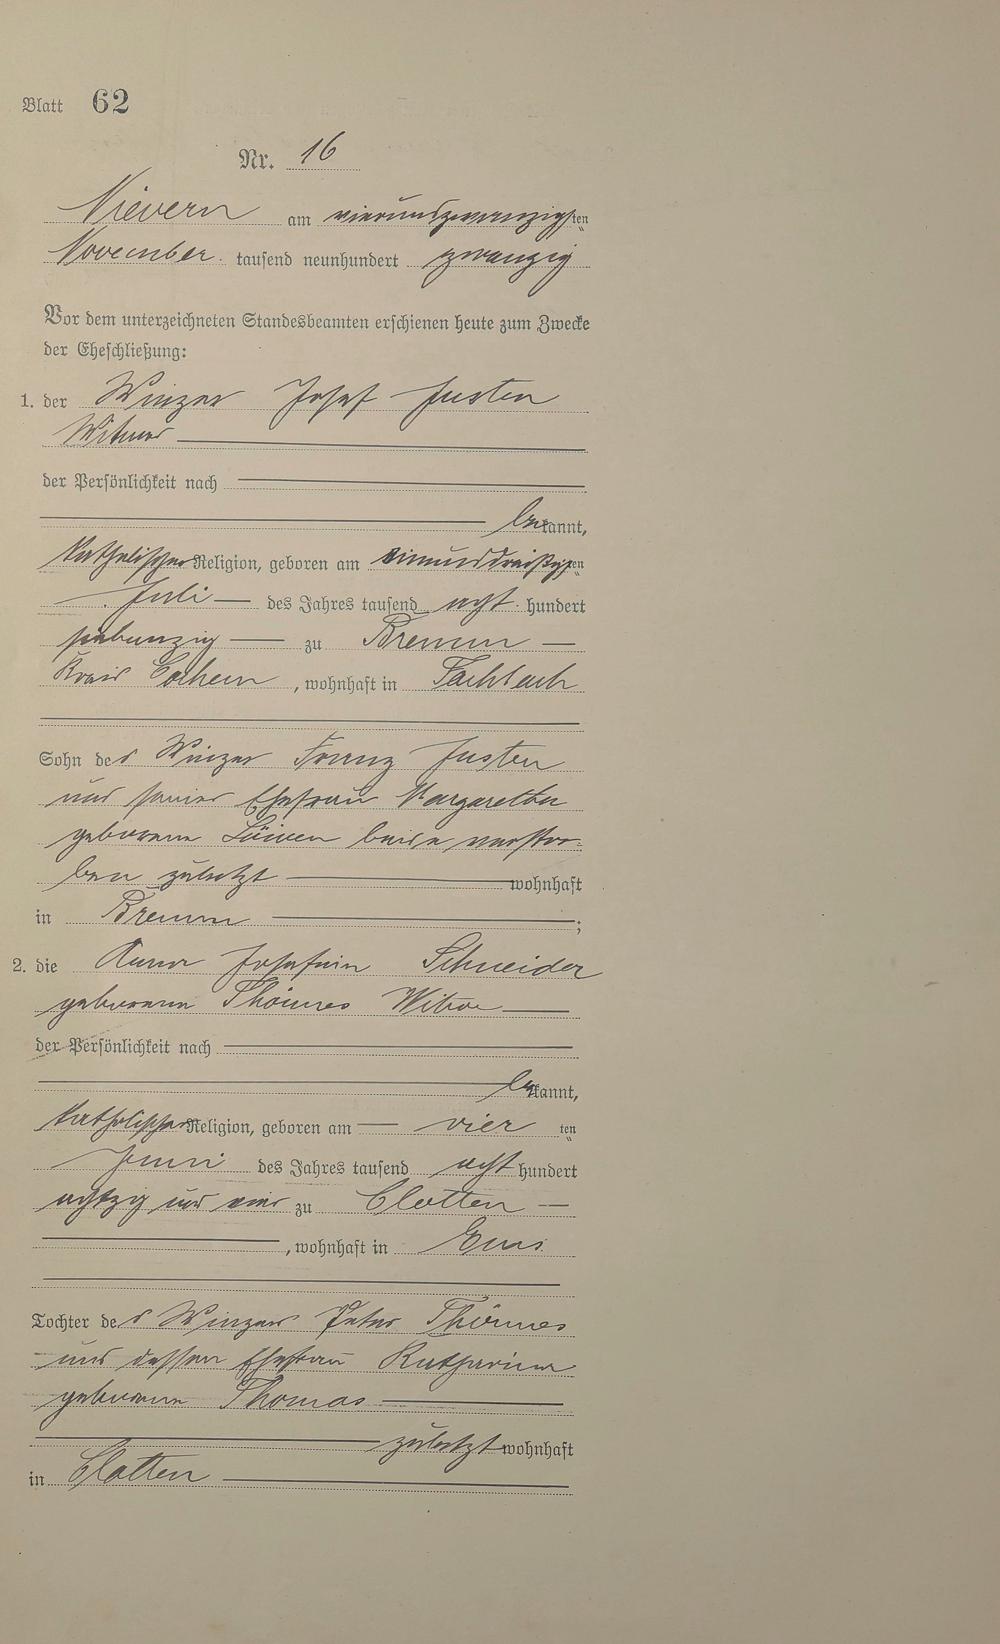 Blatt 62
Nr. 16
Nievern am vierundzwanzigsten
November tausend neunhundert zwanzig
Vor dem unterzeichneten Standesbeamten erschienen heute zum Zwecke
der Eheschließung:
1. der Winzer Josef Justen
Witwer
der Persönlichkeit nach
bekannt,
katholischer Religion, geboren am einunddreißigsten
Juli des Jahres tausend acht hundert
siebenzig zu Bremm
Kreis Cochem, wohnhaft in Fachbach
Sohn des Winzer Franz Justen
und seiner Ehefrau Margaretha
geborene Löiven beide verstor-
ben zuletzt wohnhaft
in Bremm;
2. die Anna Josefine Schneider
geborene Thönnes Witwe
der Persönlichkeit nach
bekannt,
katholischer Religion, geboren am vier ten
Juni des Jahres tausend acht hundert
achtzig und eins zu Clotten
, wohnhaft in Ems
Tochter des Winzers Peter Thönnes
und dessen Ehefrau Katharina
geborene Thomas
zuletzt wohnhaft
in Clotten